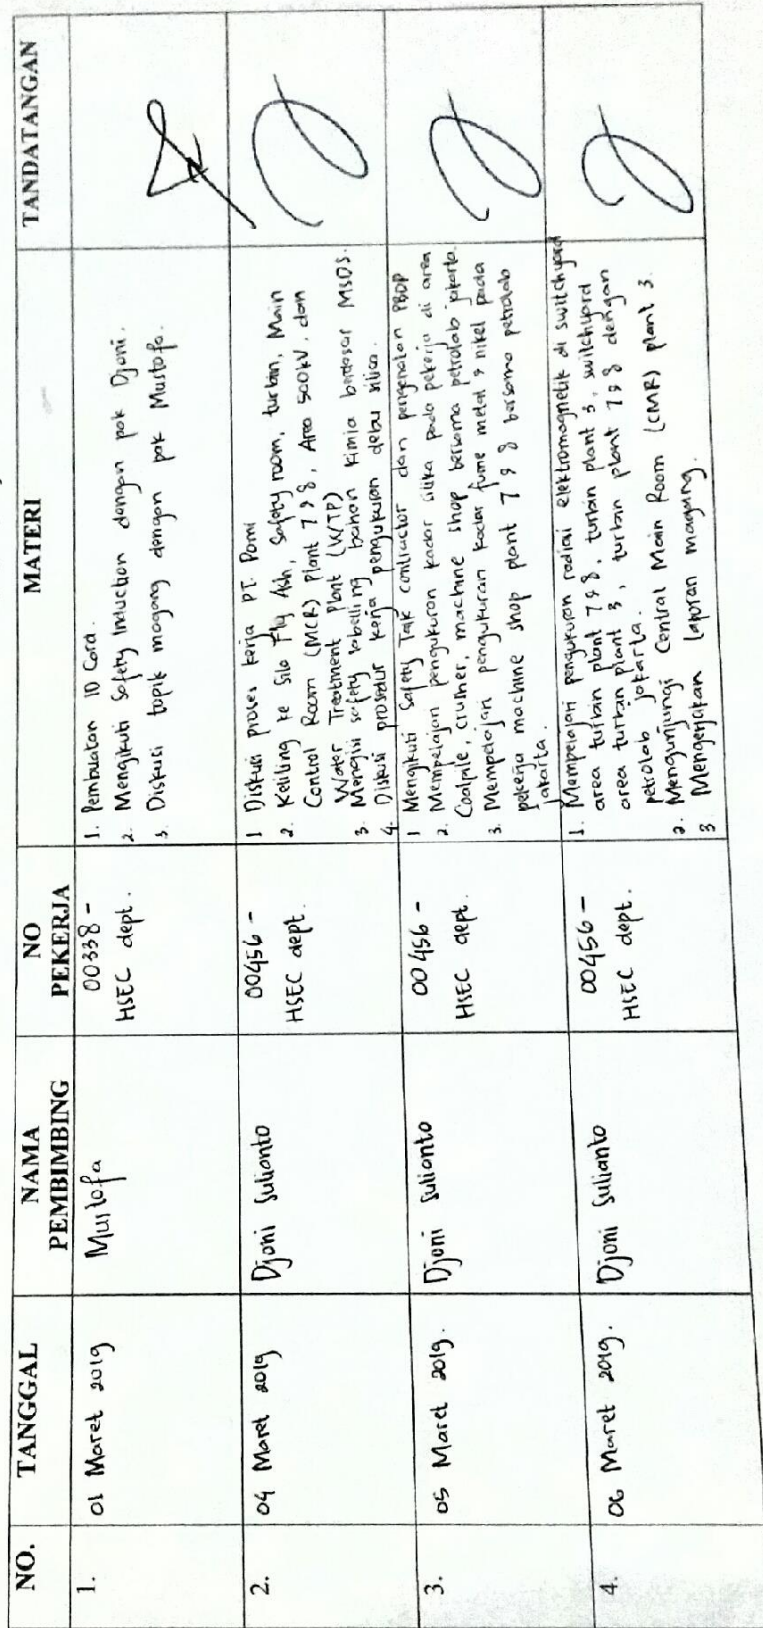 NO.
TANGGAL
NAMA
PEMBIMBING
NO
PEKERJA
MATERI
TANDATANGAN
1.
01 Maret 2019
Mustofa
00338 -
HSEC dept.
1. Pembuatan ID Card.
2. Mengikuti Safety Induction dengan pak Djoni.
3. Diskusi topik magang dengan pak Mustofa.
2.
04 Maret 2019
Djoni Sulianto
00456 -
HSEC dept.
1 Diskusi proses kerja PT. Pomi
2. Keliling ke Silo Fly Ash, Safety room, turbin, Main
Control Room (MCR) Plant 7 & 8, Area 500kV, dan
Water Treatment Plant (WTP)
3. Mengisi safety labelling bahan kimia berdasar MSDS.
4. Diskusi prosedur kerja pengukuran debu silica.
3.
05 Maret 2019.
Djoni Sulianto
00456 -
HSEC dept.
1 Mengikuti Safety Talk contractor dan pengenalan PBDP
2. Mempelajari pengukuran kadar silika pada pekerja di area
Coalpile, crusher, machine shop bersama petrolab jakarta.
3. Mempelajari pengukuran kadar fume metal & nikel pada
pekerja machine shop plant 7 & 8 bersama petrolab
jakarta.
4.
06 Maret 2019.
Djoni Sulianto
00456 -
HSEC dept.
1. Mempelajari pengukuran radiasi elektromagnetik di switchyard
area turbin plant 7 & 8, turbin plant 3, switchyard
area turbin plant 3, turbin plant 7 & 8 dengan
petrolab jakarta.
2. Mengunjungi Central Main Room (CMR) plant 3.
3 Mengerjakan laporan magang.